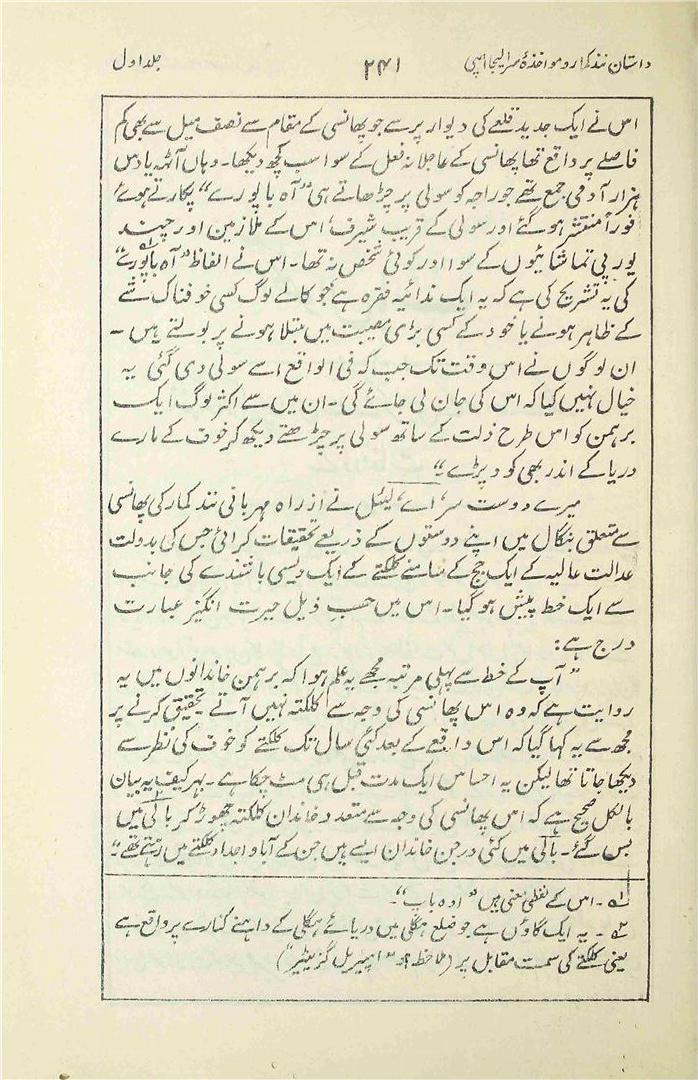 داستان نند کمار و مواخذۂ سر ایلیجا امپی ۲۴۱ جلد اول
اس نے ایک جدید قلعے کی دیوار پر سے جو پھانسی کے مقام سے نصف میل سے بھی کم
فاصلے پر واقع تھا پھانسی کے عاجلانہ فعل کے سوا سب کچھ دیکھا۔ وہاں آٹھ یا دس
ہزار آدمی جمع تھے جو راجہ کو سولی پر چڑھاتے ہی ”آہ باپورے“ پکارتے ہوئے
فوراً منتشر ہو گئے اور سولی کے قریب شیرف، اس کے ملازمین اور چند
یورپی تماشائیوں کے سوا اور کوئی شخص نہ تھا۔ اس نے الفاظ ”آہ باپورے“ ۱؎
کی یہ تشریح کی ہے کہ یہ ایک ندائیہ فقرہ ہے جو کالے لوگ کسی خوفناک شے
کے ظاہر ہونے یا خود کے کسی بڑی مصیبت میں مبتلا ہونے پر بولتے ہیں۔
ان لوگوں نے اس وقت تک جب کہ فی الواقع اسے سولی دی گئی یہ
خیال نہیں کیا کہ اس کی جان لی جائے گی۔ ان میں سے اکثر لوگ ایک
برہمن کو اس طرح ذلت کے ساتھ سولی پر چڑھتے دیکھ کر خوف کے مارے
دریا کے اندر بھی کود پڑے“
میرے دوست سر، اے، لیئل نے از راہ مہربانی نند کمار کی پھانسی
سے متعلق بنگال میں اپنے دوستوں کے ذریعے تحقیقات کرائی جس کی بدولت
عدالت عالیہ کے ایک جج کے سامنے کلکتے کے ایک دیسی باشندے کی جانب
سے ایک خط پیش ہو گیا۔ اس میں حسب ذیل حیرت انگیز عبارت
درج ہے:
”آپ کے خط سے پہلی مرتبہ مجھے یہ علم ہوا کہ برہمن خاندانوں میں یہ
روایت ہے کہ وہ اس پھانسی کی وجہ سے کلکتہ نہیں آتے۔ تحقیق کرنے پر
مجھ سے یہ کہا گیا کہ اس واقعے کے بعد کئی سال تک کلکتے کو خوف کی نظر سے
دیکھا جاتا تھا لیکن یہ احساس ایک مدت قبل ہی مٹ چکا ہے۔ بہر کیف یہ بیان
بالکل صحیح ہے کہ اس پھانسی کی وجہ سے متعدد خاندان کلکتہ چھوڑ کر بالی میں
بس گئے۔ بالی میں کئی درجن خاندان ایسے ہیں جن کے آبا و اجداد کلکتے میں رہتے تھے“
۱؎۔ اس کے لفظی معنی ہیں ”اوہ باپ“۔
۲؎ ۔ یہ ایک گاؤں ہے جو ضلع ہگلی میں دریائے ہگلی کے داہنے کنارے پر واقع ہے
یعنی کلکتے کی سمت مقابل پر (ملاحظہ ہو ”امپیریل گزیٹیر“)